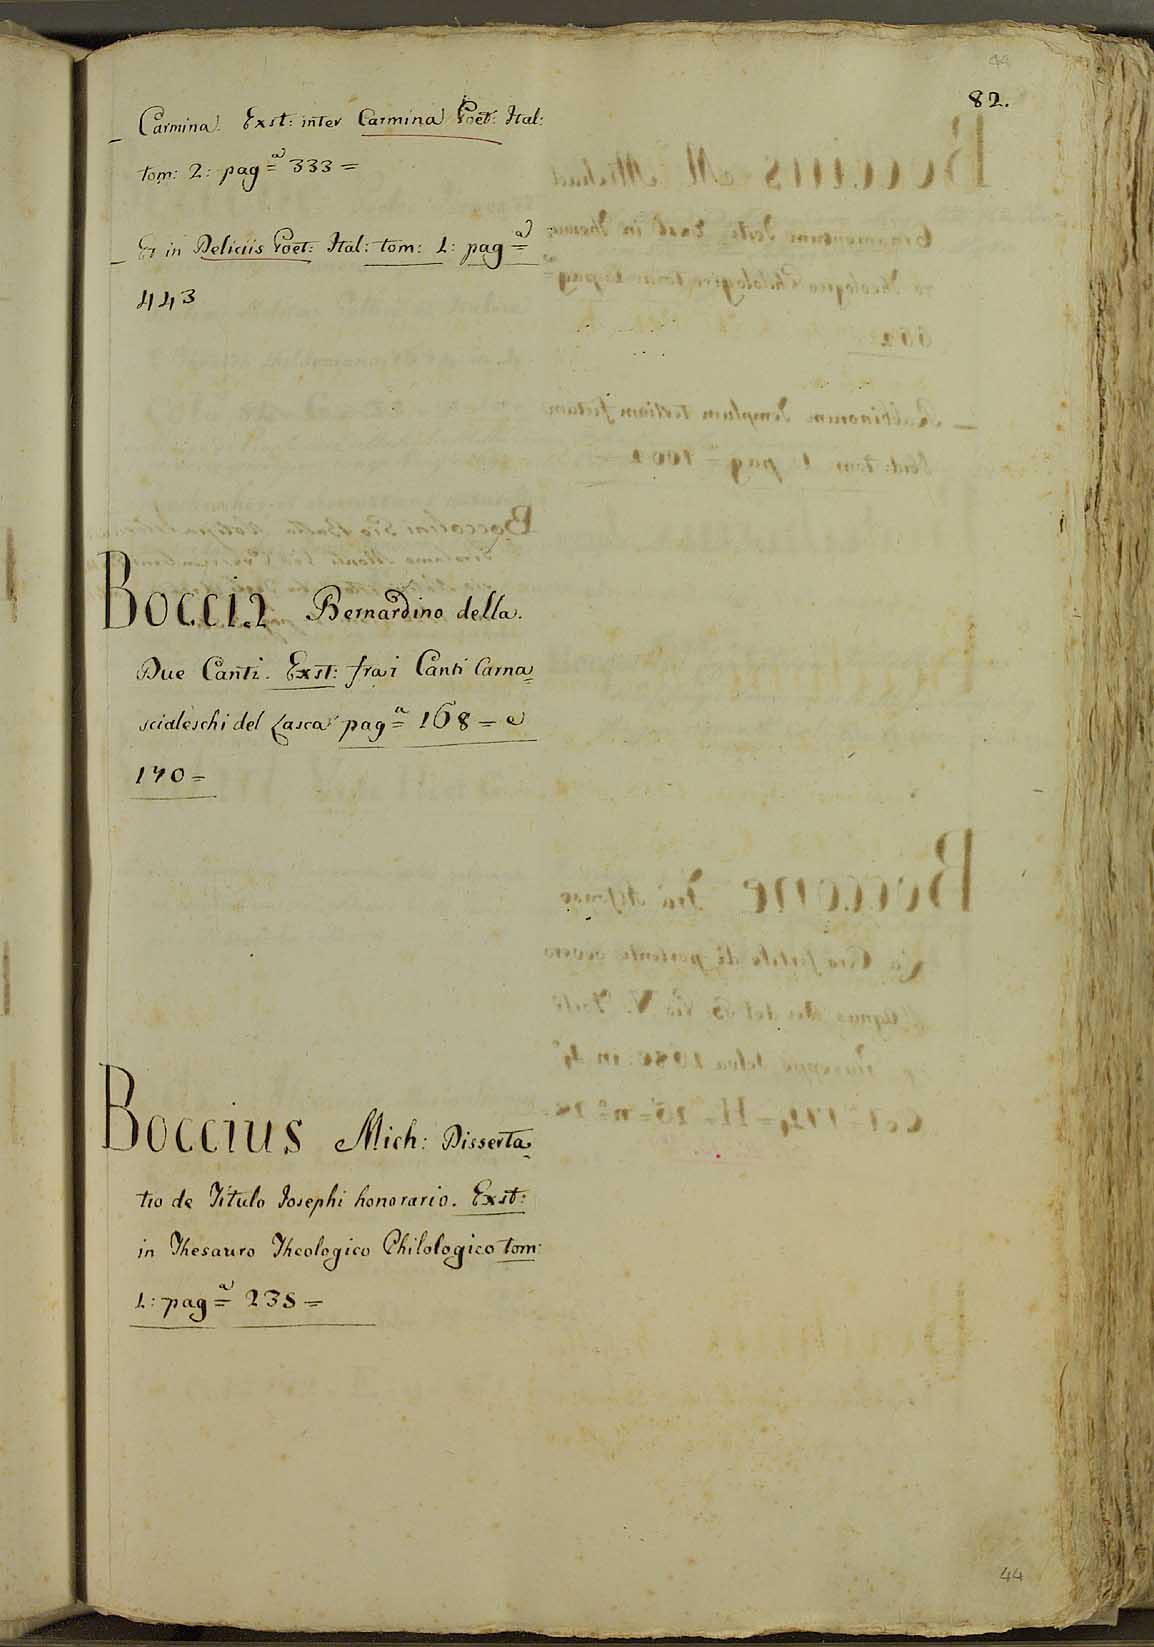 44
82.
Carmina. Exst: inter Carmina Poët: Ital:
tom: 2: pagª 333 =
Et in Deliciis Poët: Ital: tom: 1: pagª
443
Boccia Bernardino della.
Due Canti. Exst: fra i Canti Carna=
scialeschi del Lasca pagª 168 = e
170 =
Boccius Mich: Disserta=
tio de Titulo Josephi honorario. Exst:
in Thesauro Theologico Philologico tom:
1: pagª 238 =
44